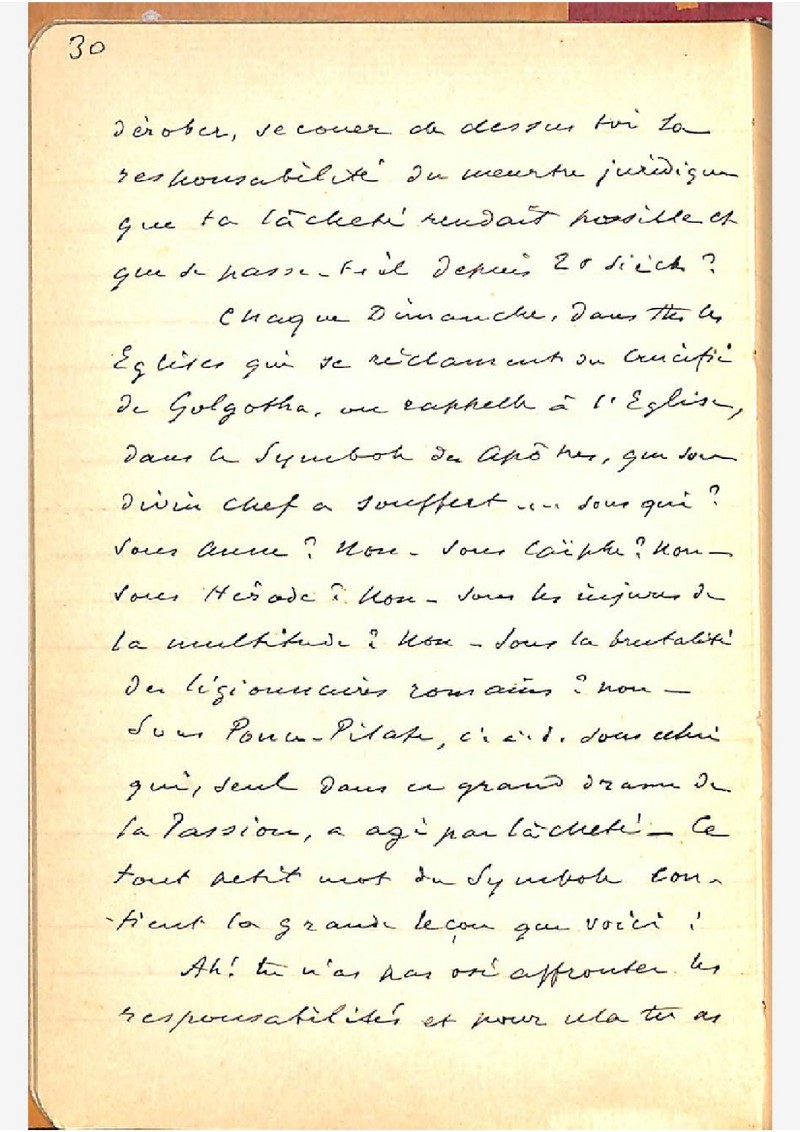 30
dérober, secouer de dessus toi la
responsabilité du meurtre juridique
que ta lâcheté rendait possible et
que se passe-t-il depuis 20 siècles ?
Chaque Dimanche, dans tts les
Eglises qui se réclament du Crucifié
de Golgotha, on rappelle à l'Eglise,
dans le Symbole des Apôtres, que son
divin chef a souffert .... sous qui ?
Sous Anne ? Non - sous Caïphe ? Non -
sous Hérode ? Non - sous les injures de
la multitude ? Non - Sous la brutalité
des légionnaires romains ? non -
Sous Ponce-Pilate, c. à. d. sous celui
qui, seul dans ce grand drame de
la Passion, a agi par lâcheté - Ce
tout petit mot du Symbole con-
-tient la grande leçon que voici :
Ah! tu n'as pas osé affronter les
responsabilités et pour cela tu as